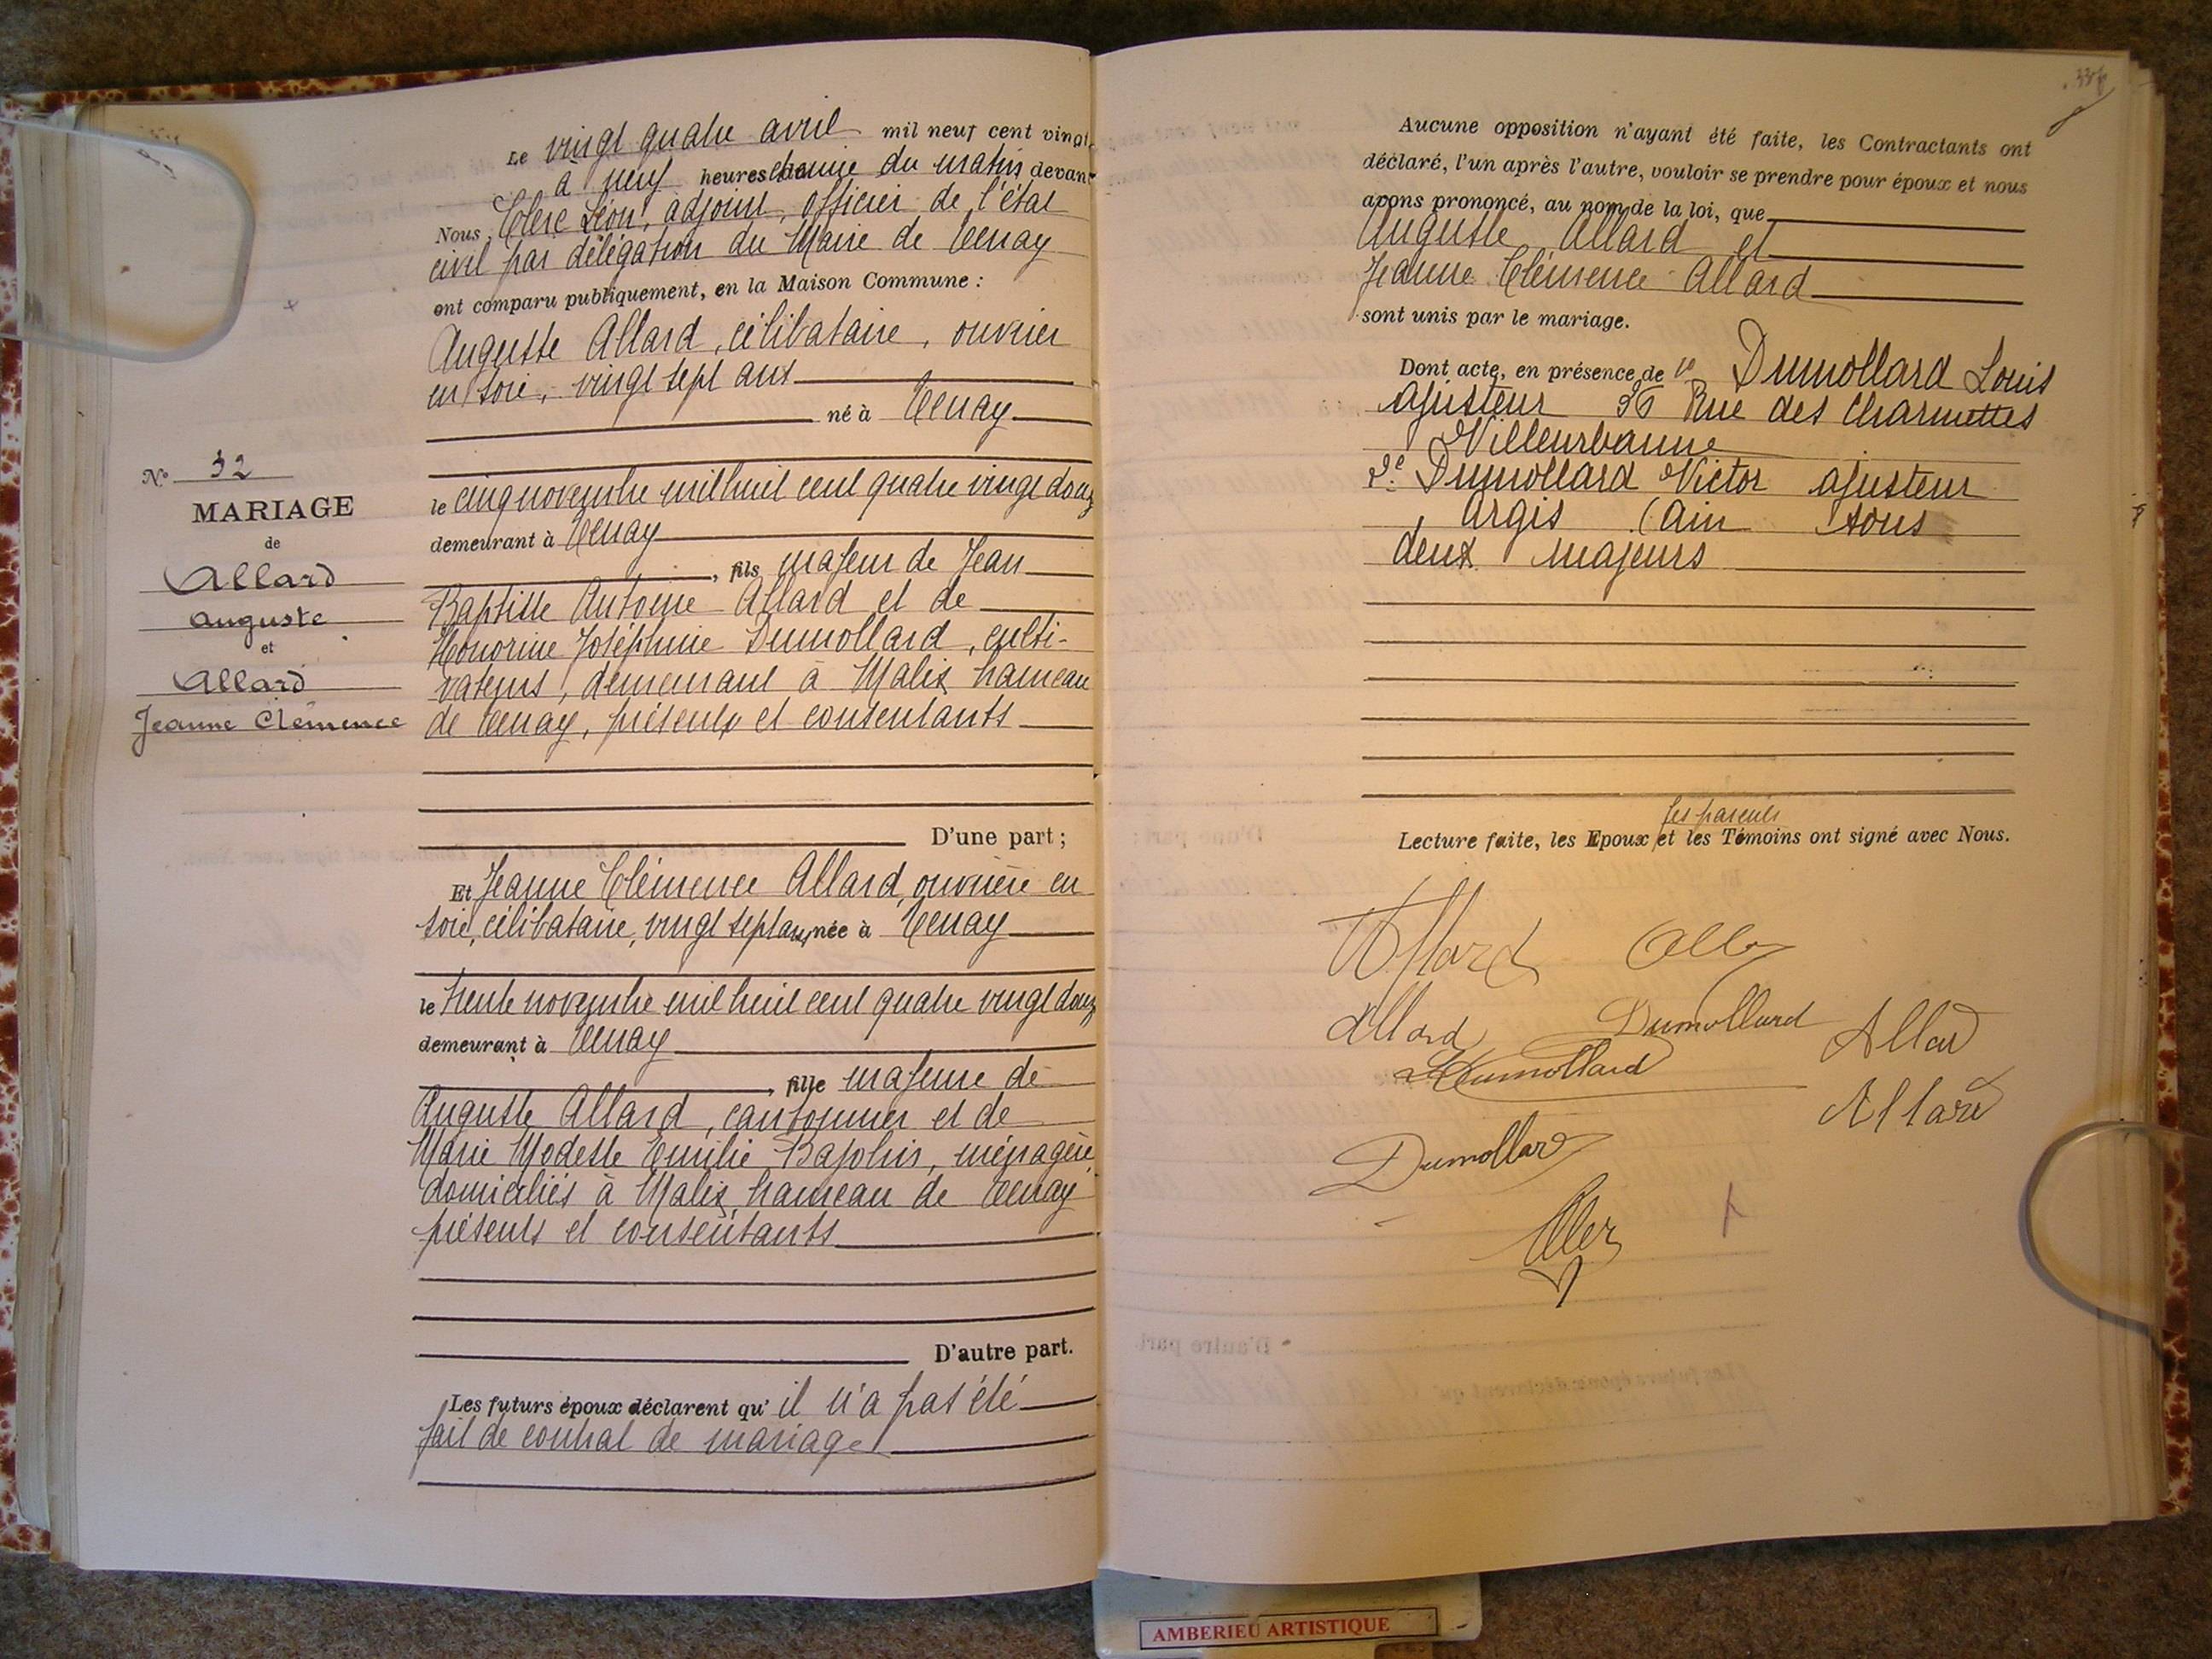 Le vingt quatre avril mil neuf cent vingt
à neuf heures demie du matin devant
Nous Clerc Léon, adjoint, officier de l'état
civil par délégation du Maire de Tenay
ont comparu publiquement, en la Maison Commune :
Auguste Allard, célibataire, ouvrier
en soie, vingt sept ans
né à Tenay
le cinq novembre mil huit cent quatre vingt douze
demeurant à Tenay
, fils majeur de Jean
Baptiste Antoine Allard et de
Honorine Joséphine Dumollard, culti-
vateurs, demeurant à Malix hameau
de Tenay, présents et consentants
D'une part ;
Et Jeanne Clémence Allard, ouvrière en
soie, célibataire, vingt sept ans, née à Tenay
le trente novembre mil huit cent quatre vingt douze
demeurant à Tenay
, fille majeure de
Auguste Allard, cantonnier et de
Marie Modeste Emilie Bajolin, ménagère
domiciliés à Malix, hameau de Tenay
présents et consentants
D'autre part.
Les futurs époux déclarent qu' il n'a pas été
fait de contrat de mariage
N° 32
MARIAGE
de
Allard
Auguste
et
Allard
Jeanne Clémence
Aucune opposition n'ayant été faite, les Contractants ont
déclaré, l'un après l'autre, vouloir se prendre pour époux et nous
avons prononcé, au nom de la loi, que
Auguste Allard et
Jeanne Clémence Allard
sont unis par le mariage.
Dont acte, en présence de 1° Dumollard Louis
ajusteur 36 Rue des Charmettes
Villeurbanne
2° Dumollard Victor ajusteur
Argis (Ain tous
deux majeurs
les parents
Lecture faite, les Epoux et les Témoins ont signé avec Nous.
Allard
Allard Dumollard Allard
Dumollard
Allard
Dumollard
AMBERIEU ARTISTIQUE